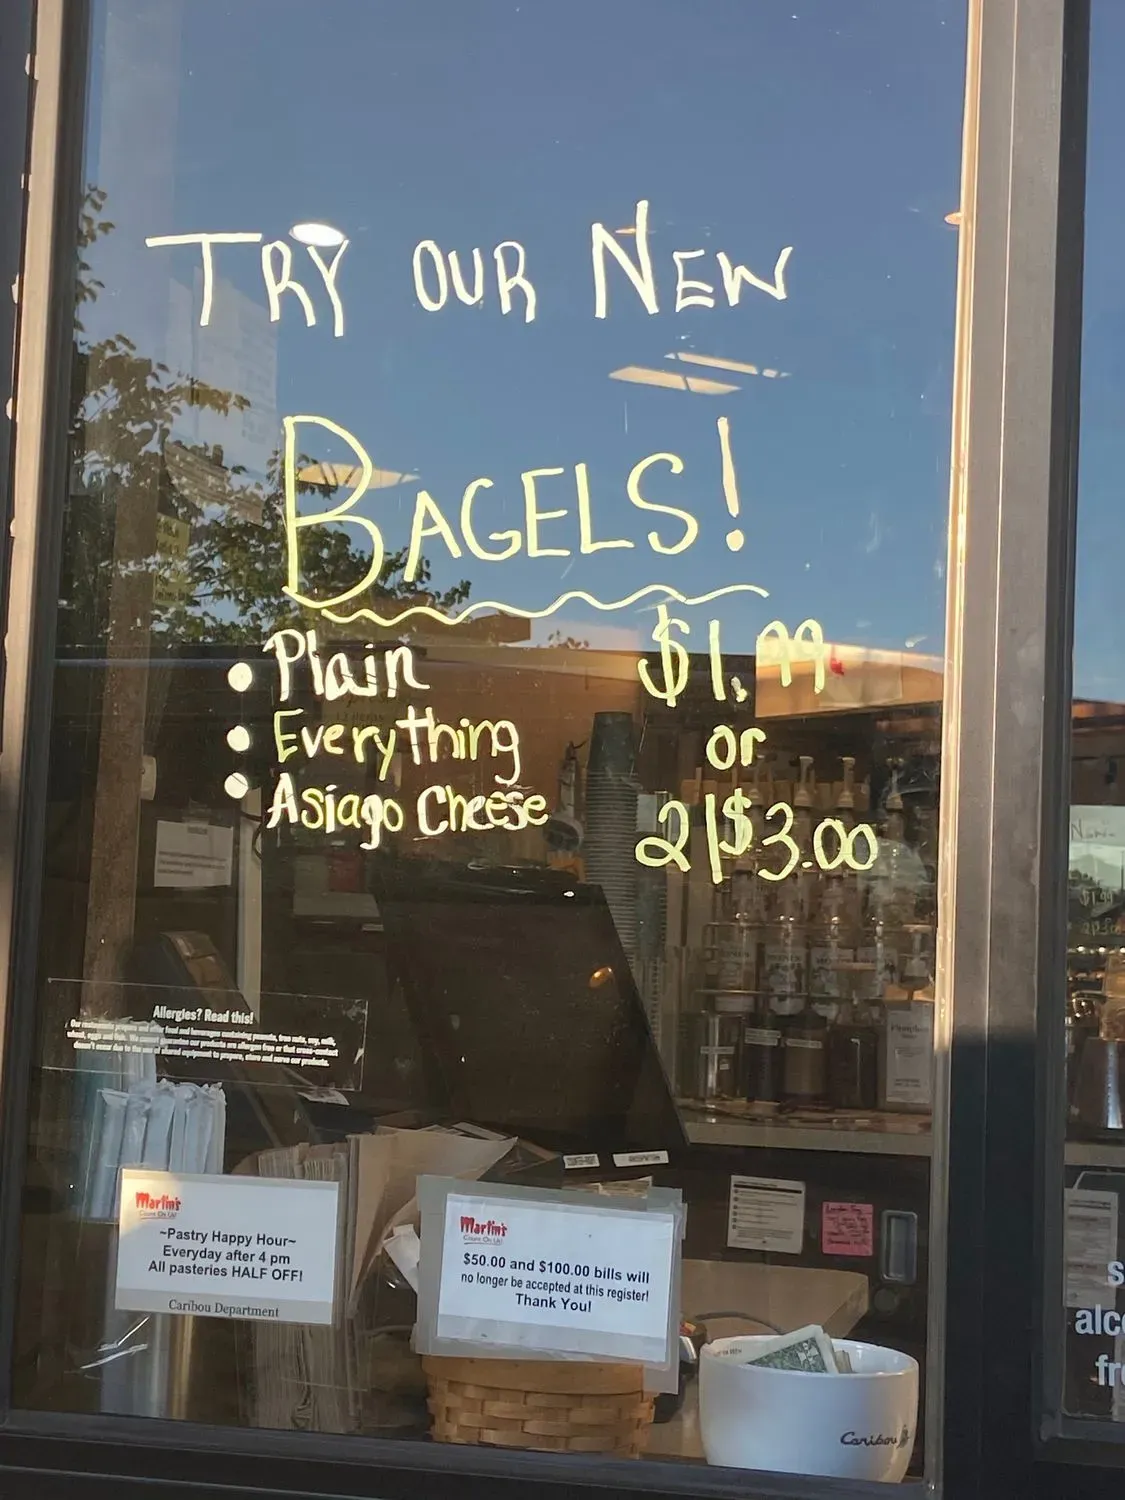 TRY OUR NEW
BAGELS!
• Plain
• Everything
• Asiago Cheese
$1.99
or
2/$3.00
Allergies? Read this!
Martin's
Count On Us!
~Pastry Happy Hour~
Everyday after 4 pm
All pasteries HALF OFF!
Caribou Department
Martin's
Count On Us!
$50.00 and $100.00 bills will
no longer be accepted at this register!
Thank You!
Caribou